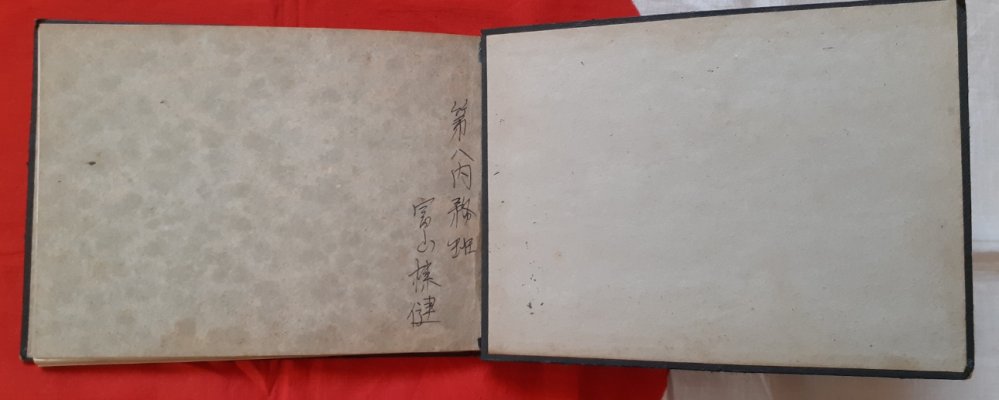 第八内務班
富山棟健